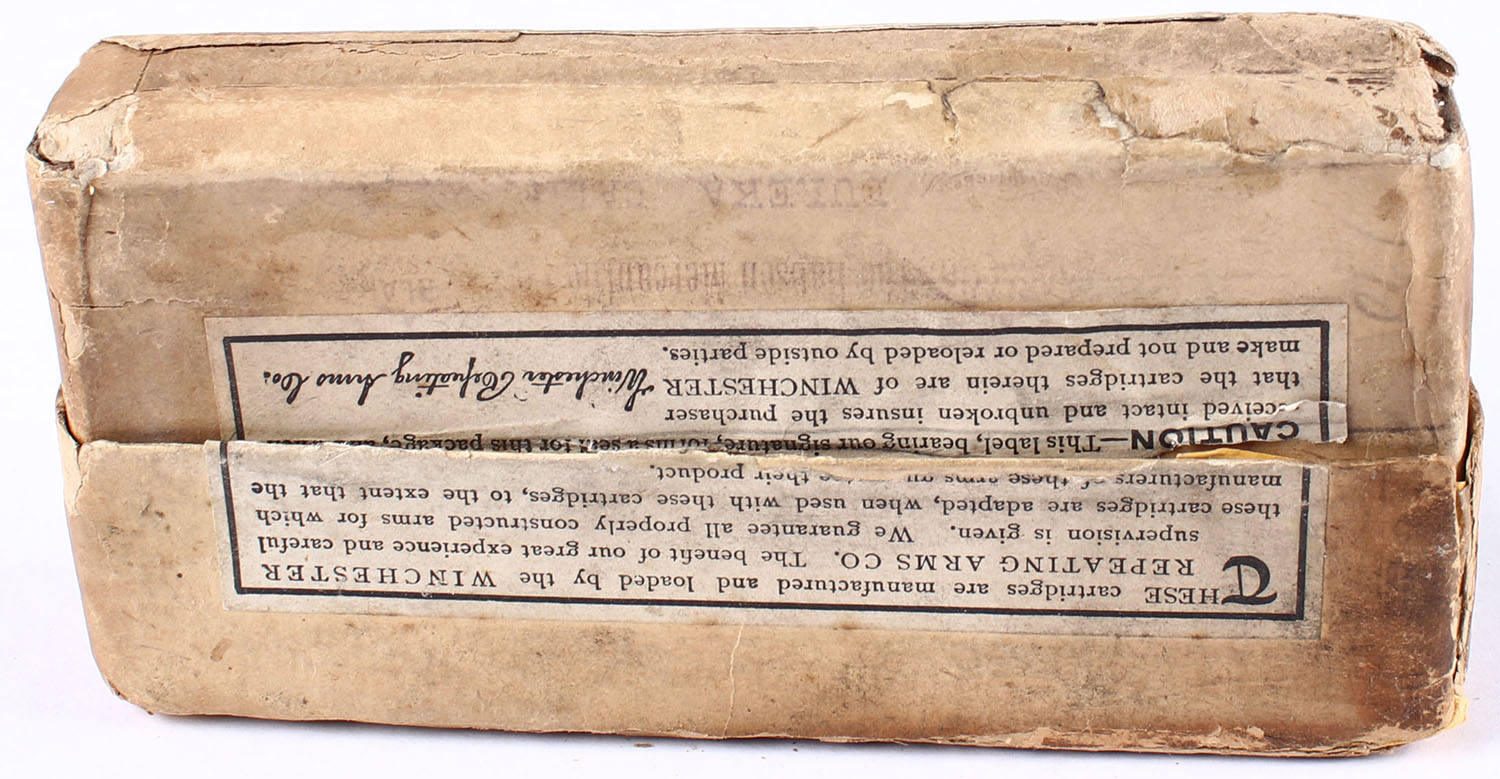 THESE cartridges are manufactured and loaded by the WINCHESTER
REPEATING ARMS CO. The benefit of our great experience and careful
supervision is given. We guarantee all properly constructed arms for which
these cartridges are adapted, when used with these cartridges, to the extent that the
manufacturers of these arms their product.
CAUTION—This label, bearing our signature, forms a seal for this package, and when
received intact and unbroken insures the purchaser
that the cartridges therein are of WINCHESTER
make and not prepared or reloaded by outside parties.
Winchester Repeating Arms Co.
Mercantile
EUREKA